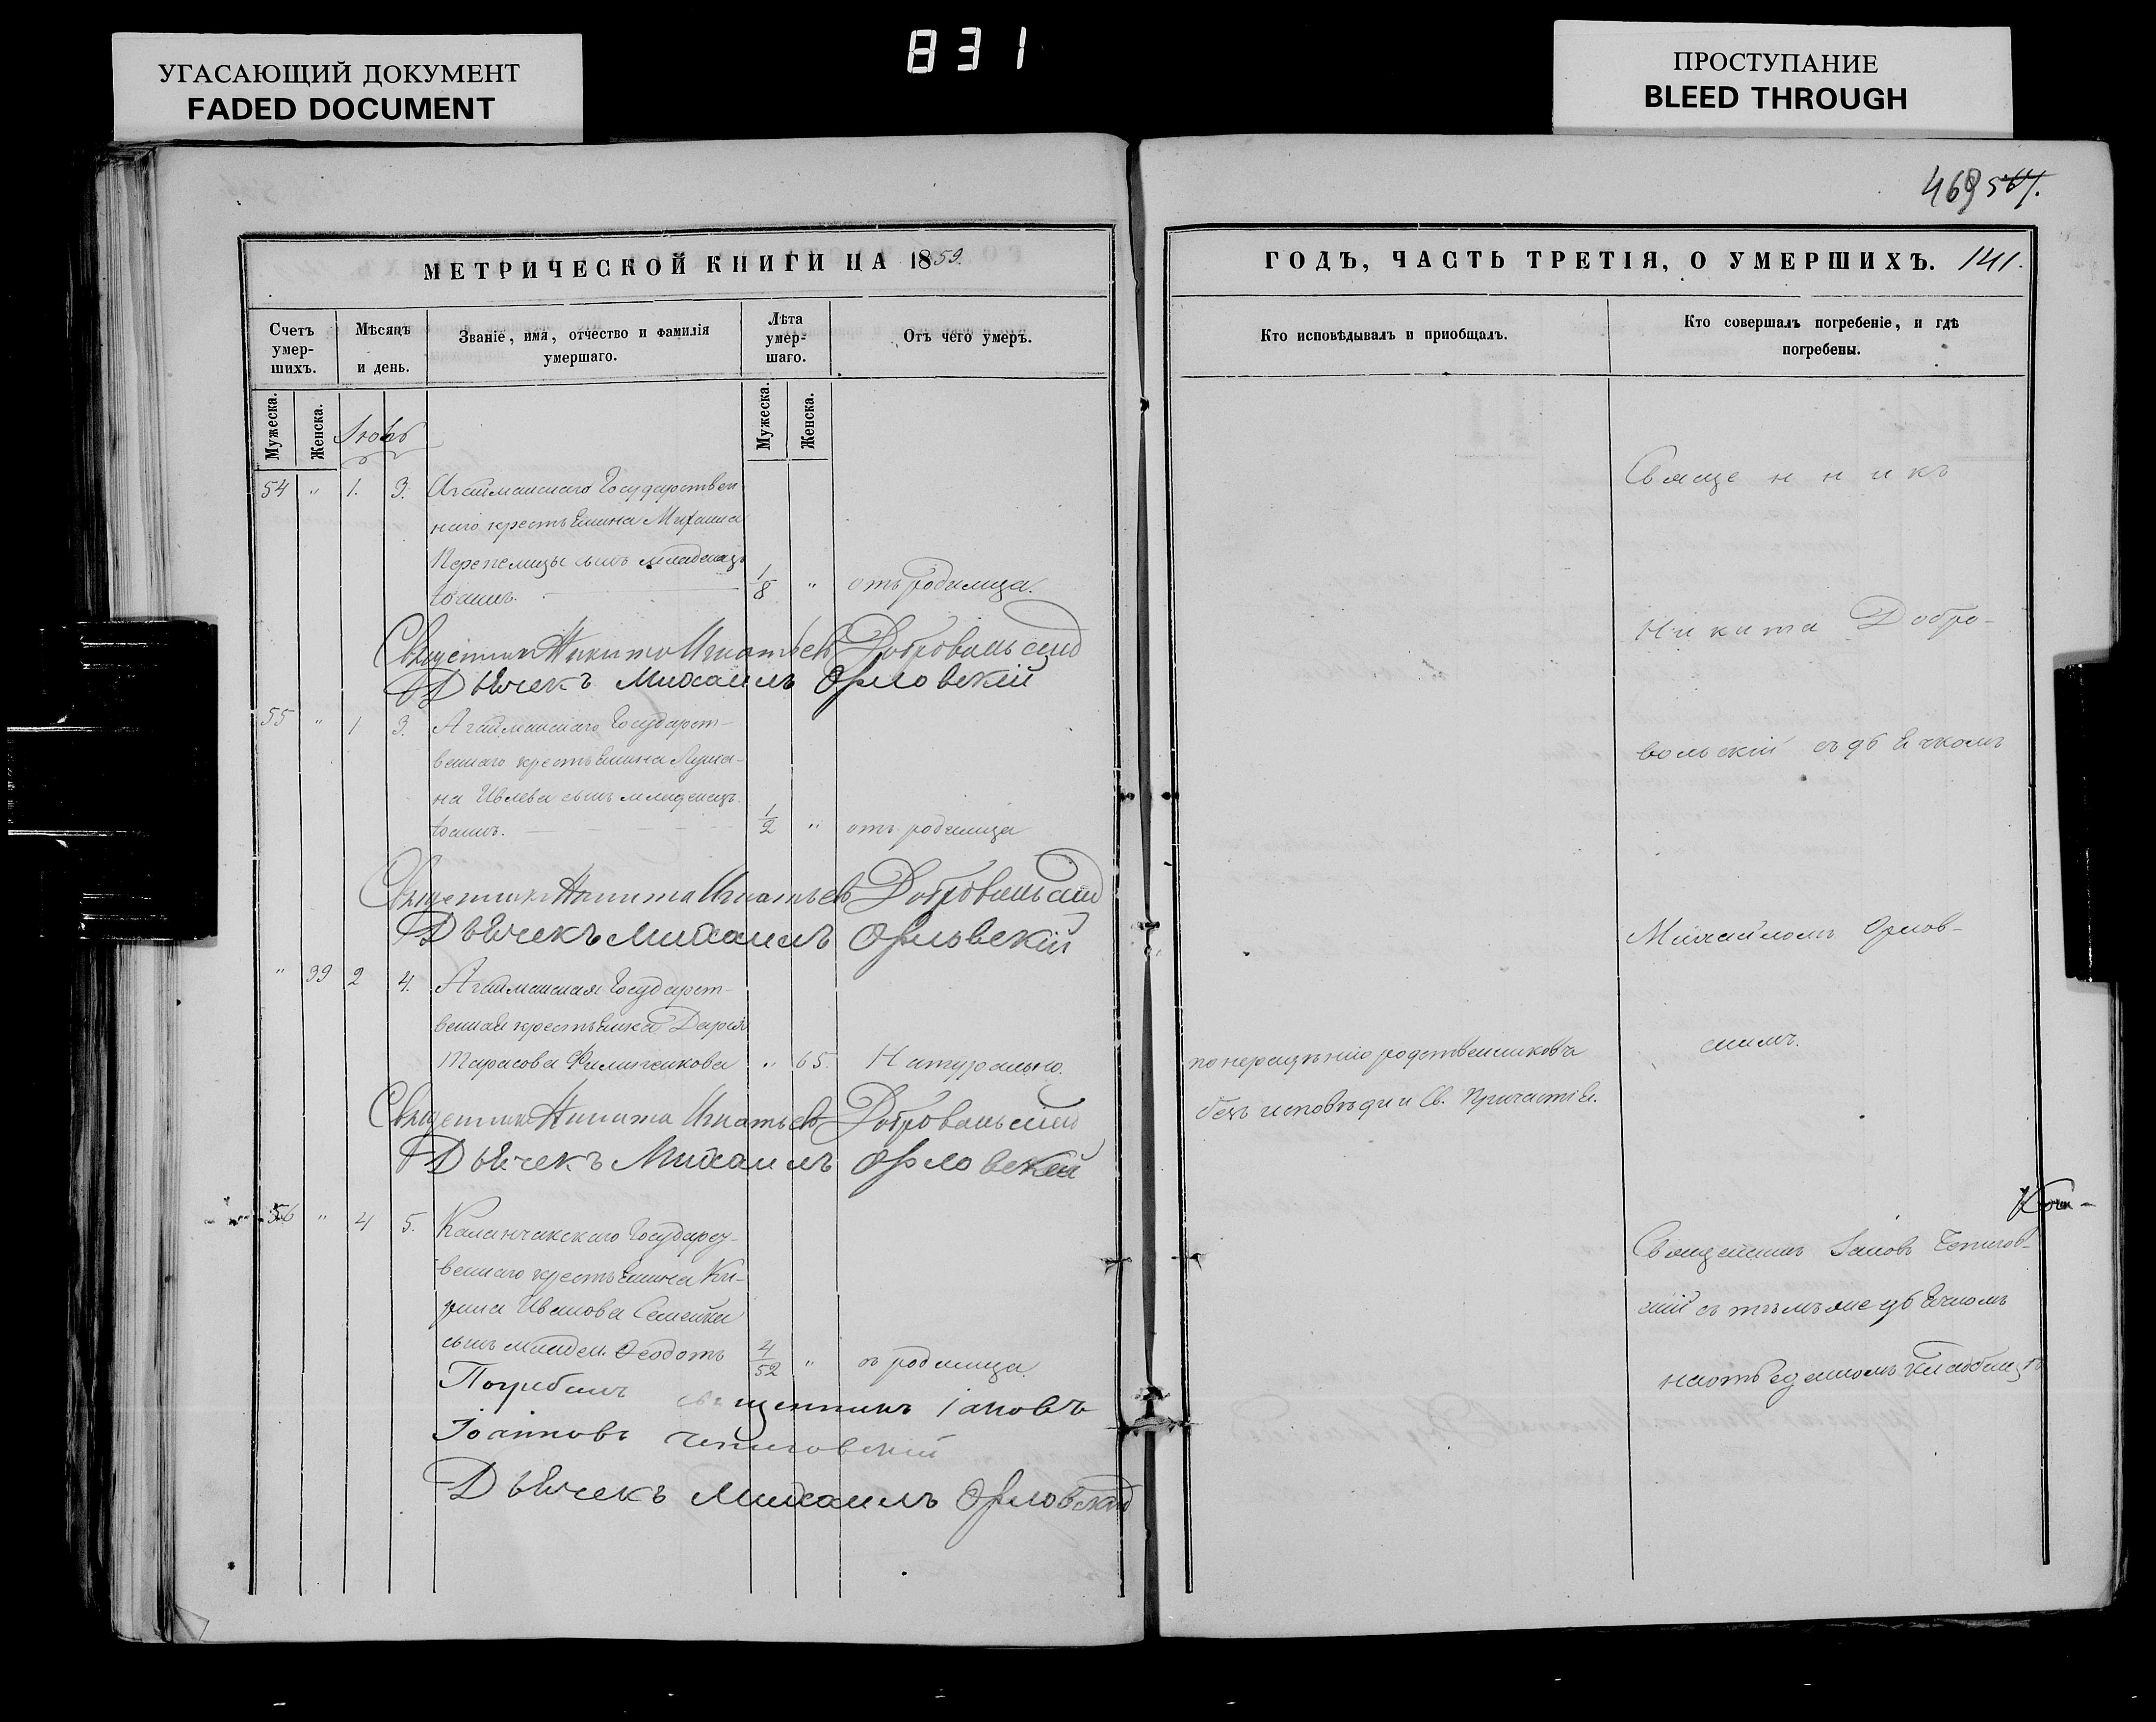 831
УГАСАЮЩИЙ ДОКУМЕНТ
FADED DOCUMENT
ПРОСТУПАНИЕ
BLEED THROUGH
469 567.
МЕТРИЧЕСКОЙ КНИГИ НА 1859.
Счетъ умер-шихъ.
Мѣсяцъ и день.
Званіе, имя, отчество и фамилія умершаго.
Лѣта умер-шаго.
Отъ чего умеръ.
Мужеска.
Женска.
Мужеска.
Женска.
54 " 1. 3. Агайманскаго Государствен
наго крестьянина Михаила
Перепелицы сынъ младенецъ
Іоаннъ. 1/8 " отъ родимца.
Священникъ Никита Игнатьевъ Добровольскій
Дьячекъ Михаилъ Орловскій
55 " 1 3. Агайманскаго Государст-
веннаго крестьянина Лукиа-
на Ивлева сынъ младенецъ
Іоаннъ. 1/2 " отъ родимца
Священникъ Никита Игнатьевъ Добровольскій
Дьячекъ Михаилъ Орловскій
" 39 2 4. Агайманская Государст-
венная крестьянка Дарія
Тарасова Филипенкова " 65. Натурально.
Священникъ Никита Игнатьевъ Добровольскій
Дьячекъ Михаилъ Орловскій
56 " 4 5. Каланчакскаго Государст-
веннаго крестьянина Ки-
рила Иванова Семенки
сынъ младен. Ѳеодотъ 4/52 " отъ родимца.
Погребалъ священникъ Іаковъ
Іоанновъ
Дьячекъ Михаилъ Орловскій
ГОДЪ, ЧАСТЬ ТРЕТІЯ, О УМЕРШИХЪ. 141.
Кто исповѣдывалъ и приобщалъ.
Кто совершалъ погребеніе, и гдѣ погребены.
Священникъ
Никита Добро-
вольскій съ дьячкомъ
Михаиломъ Орлов-
скимъ.
по нерадѣнію родственниковъ
безъ исповѣди и Св. Причастія.
Священникъ Іаковъ
скій съ тѣмъ же дьячкомъ
на отведенномъ кладбищѣ